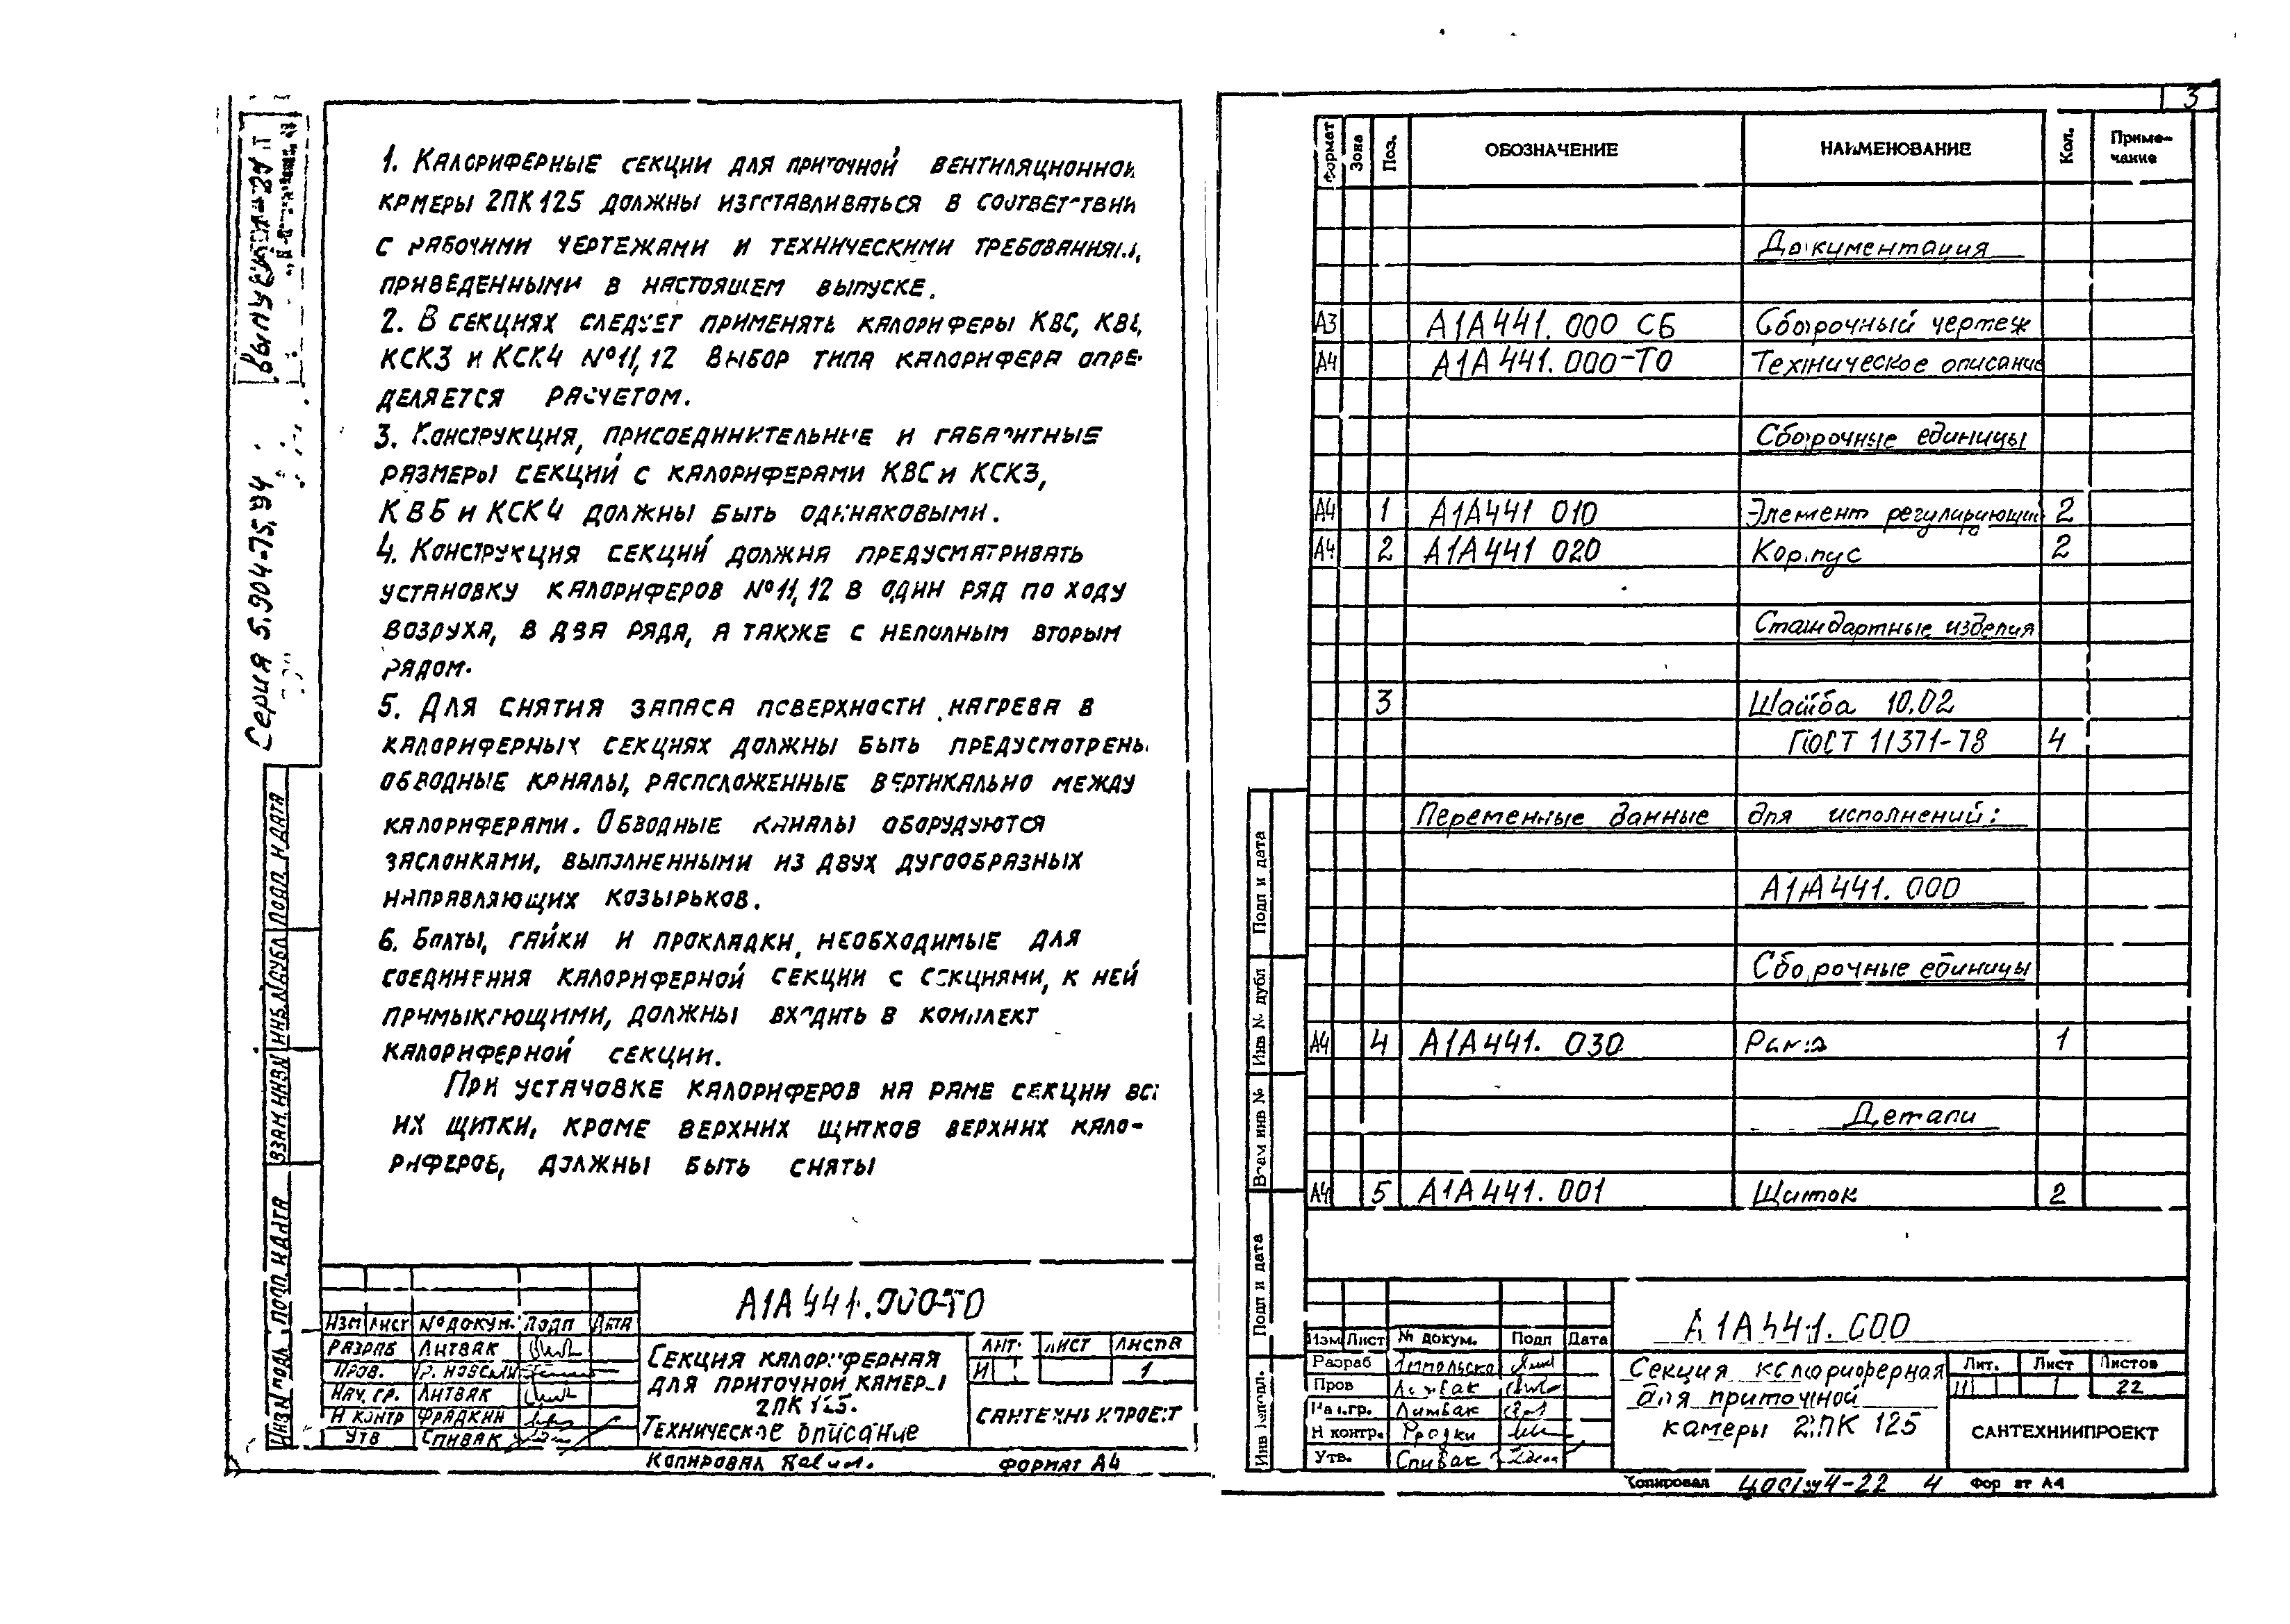 Серия 5.904-75.94
1. Калориферные секции для приточной вентиляционной
камеры 2ПК125 должны изготавливаться в соответствии
с рабочими чертежами и техническими требованиями,
приведенными в настоящем выпуске.
2. В секциях следует применять калориферы КВС, КВБ,
КСК3 и КСК4 №11,12 Выбор типа калорифера опре-
деляется расчетом.
3. Конструкция, присоединительные и габаритные
размеры секций с калориферами КВС и КСК3,
КВБ и КСК4 должны быть одинаковыми.
4. Конструкция секций должна предусматривать
установку калориферов №11,12 в один ряд по ходу
воздуха, в два ряда, а также с неполным вторым
рядом.
5. Для снятия запаса поверхности нагрева в
калориферных секциях должны быть предусмотрены
обводные каналы, расположенные вертикально между
калориферами. Обводные каналы оборудуются
заслонками, выполненными из двух дугообразных
направляющих козырьков.
6. Болты, гайки и прокладки, необходимые для
соединения калориферной секции с секциями, к ней
примыкающими, должны входить в комплект
калориферной секции.
При установке калориферов на раме секции все
их щитки, кроме верхних щитков верхних кало-
риферов, должны быть сняты
Подп. и дата
Инв. № дубл
Взам. инв №
Подп. и дата
Инв № подл
А1А441.000-ТО
Изм Лист № докум. Подп Дата
Разраб Литвак
Пров.
Нач. гр. Литвак
Н контр Фрадкин
Утв Спивак
Секция калориферная
для приточной камеры
2ПК 125.
Техническое описание
Лит. Лист Листов
И 1
Сантехниипроект
Копировал
Формат А4
3
Формат Зона Поз. ОБОЗНАЧЕНИЕ НАИМЕНОВАНИЕ Кол. Приме-
чание
Документация
А3 А1А441.000 СБ Сборочный чертеж
А4 А1А441.000-ТО Техническое описание
Сборочные единицы
А4 1 А1А441 010 Элемент регулирующий 2
А4 2 А1А441 020 Корпус 2
Стандартные изделия
3 Шайба 10.02
ГОСТ 11371-78 4
Переменные данные для исполнений:
А1А441.000
Сборочные единицы
А4 4 А1А441.030 Рама 1
Детали
А4 5 А1А441.001 Щиток 2
Подп и дата
Инв № дубл
Взам инв №
Подп и дата
Инв № подл.
А1А441.000
Изм Лист № докум. Подп Дата
Разраб
Пров Литвак
Нач.гр. Литвак
Н контр.
Утв. Спивак
Секция калориферная
для приточной
камеры 2ПК 125
Лит. Лист Листов
И 1 22
САНТЕХНИИПРОЕКТ
Копировал
4
Формат А4